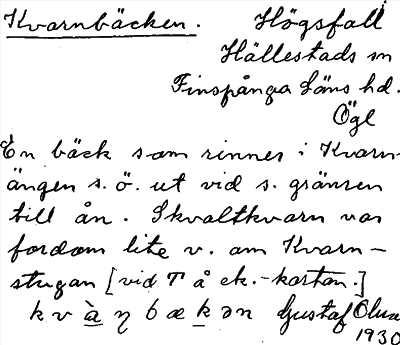 Kvarnbäcken. Högsfall
Hällestads sn
Finspånga Läns hd.
Ögl
En bäck som rinner i Kvarn
ängen s. ö. ut vid s. gränsen
till ån. Skvaltkvarn var
fordom lite v. om Kvarn-
stugan [vid T å ek.-kartan.]
k v à η b æ k ə n Gustaf
1930